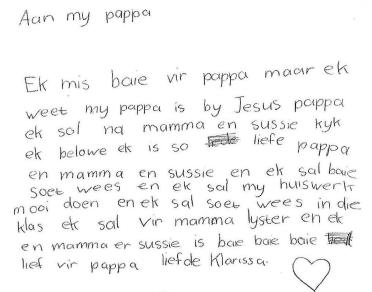 Aan my pappa
Ek mis baie vir pappa maar ek
weet my pappa is by Jesus pappa
ek sol na mamma en sussie kyk
ek belowe ek is so liefe pappa
en mamma en sussie en ek sal baie
soet wees en ek sal my huiswerk
mooi doen en ek sal soet wees in die
klas ek sal vir mamma lyster en ek
en mamma er sussie is baie baie baie
lief vir pappa liefde Klarissa.